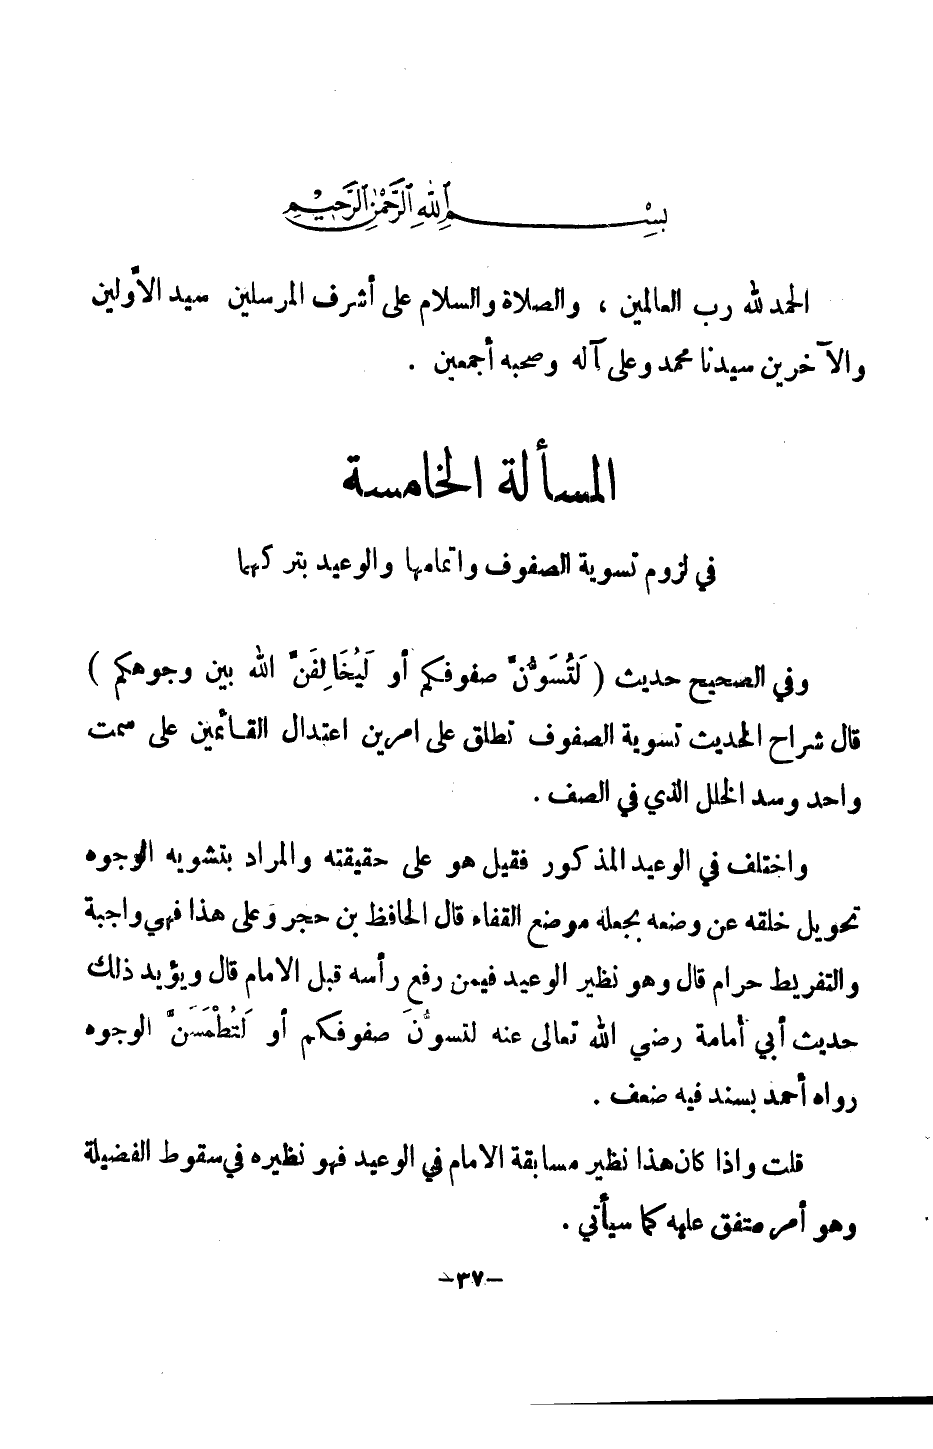 بِسْمِ اللَّهِ الرَّحْمَٰنِ الرَّحِيمِ
الحمد لله رب العالمين ، والصلاة والسلام على أشرف المرسلين سيد الأولين
والآخرين سيدنا محمد وعلى آله وصحبه أجمعين .
المسألة الخامسة
في لزوم تسوية الصفوف واتمامها والوعيد بتركها
وفي الصحيح حديث ( لَتُسَوُّنَّ صفوفكم أو لَيُخَالِفَنَّ الله بين وجوهكم )
قال شراح الحديث تسوية الصفوف تطلق على امرين اعتدال القائمين على سمت
واحد وسد الخلل الذي في الصف .
واختلف في الوعيد المذكور فقيل هو على حقيقته والمراد بتشويه الوجوه
تحويل خلقه عن وضعه بجعله موضع القفاء قال الحافظ بن حجر وَعلى هذا فهي واجبة
والتفريط حرام قال وهو نظير الوعيد فيمن رفع رأسه قبل الامام قال ويؤيد ذلك
حديث أبي أمامة رضي الله تعالى عنه لتسوُّنَ صفوفكم أو لَتُطْمَسَنَّ الوجوه
رواه أحمد بسند فيه ضعف .
قلت واذا كان هذا نظير مسابقة الامام في الوعيد فهو نظيره في سقوط الفضيلة
وهو أمر متفق عليه كما سيأتي .
-٣٧-